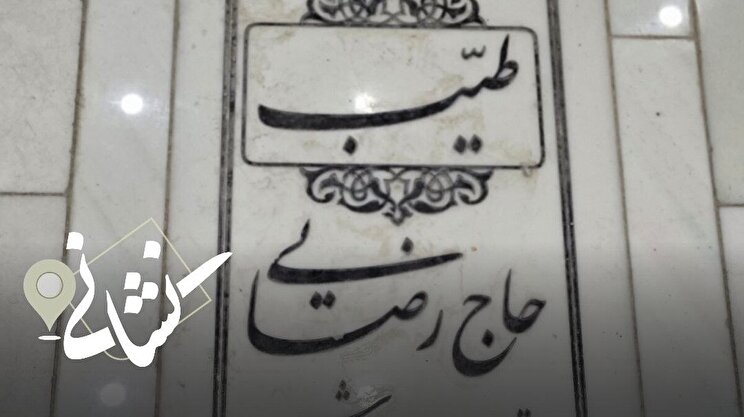 طیّب
حاج رضائی
نشانی